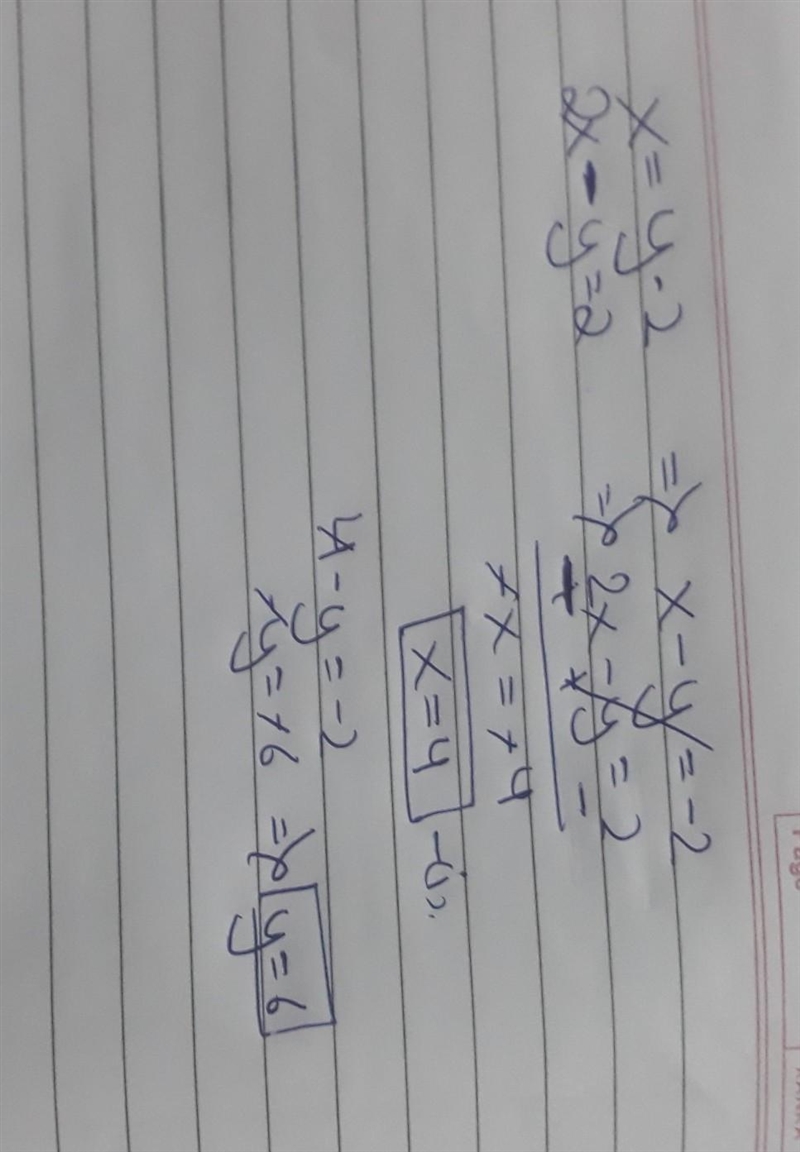 x = y - 2 => x - y = -2
2x - y = 2 => 2x - y = 2
- + -
+x = +4
x = 4 -(i).
4 - y = -2
+y = +6 => y = 6